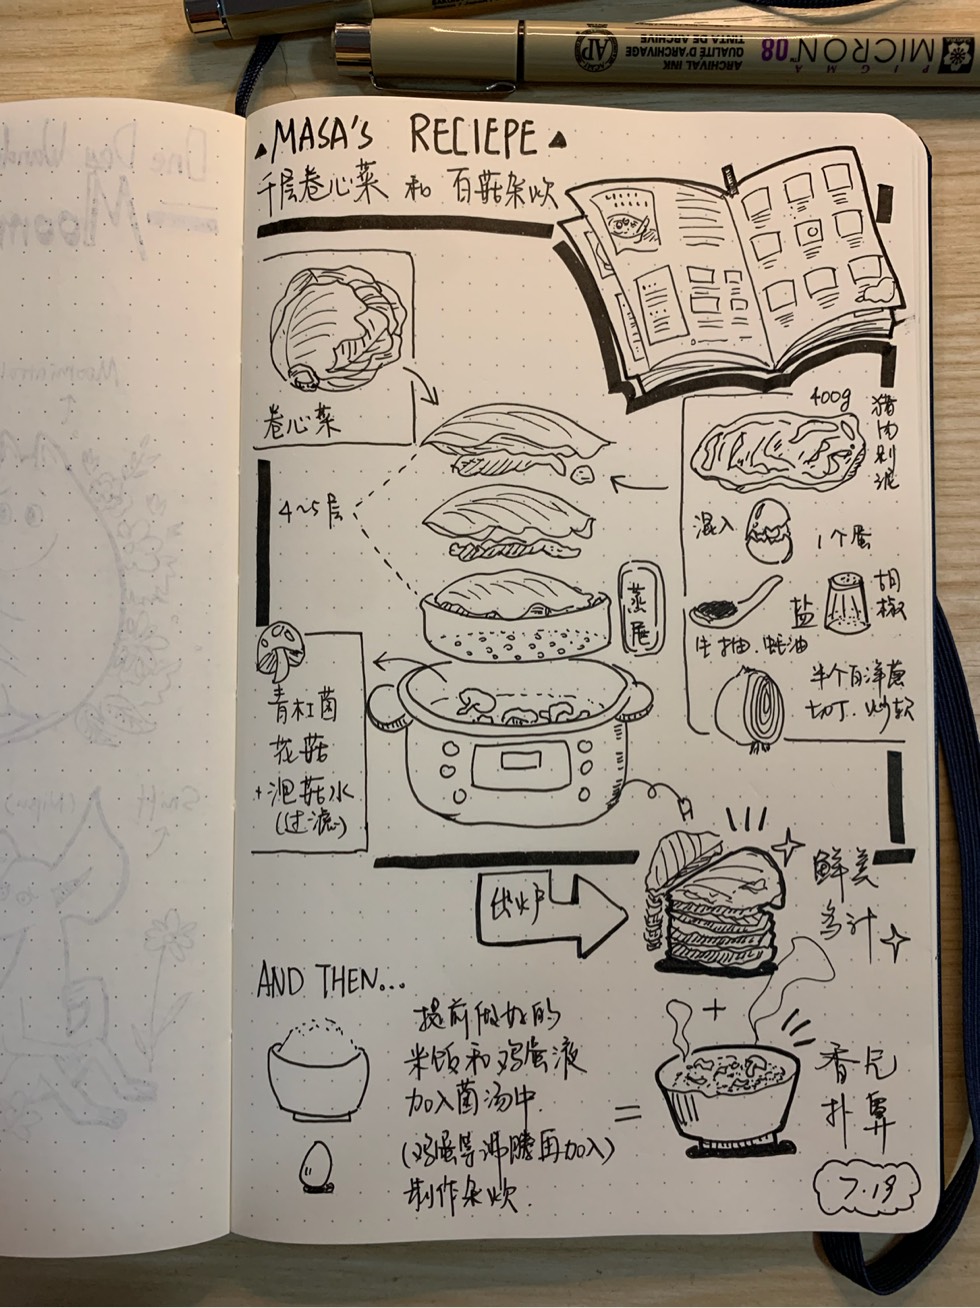 PIGMA
MICRON 08
ARCHIVAL INK
QUALITÉ D'ARCHIVAGE
TINTA DE ARCHIVE
AP
MASA'S RECIEPE
千层卷心菜 和 百菇杂炊
卷心菜
400g
猪肉剁泥
4~5层
混入
1个蛋
蒸屉
盐
胡椒
生抽、蚝油
半个白洋葱
切丁、炒软
青杠菌
花菇
+泡菇水
(过滤)
出炉
鲜美
多汁
AND THEN...
提前做好的
米饭和鸡蛋液
加入菌汤中
(鸡蛋等沸腾再加入)
制作杂炊
+
=
香气
扑鼻
7.19